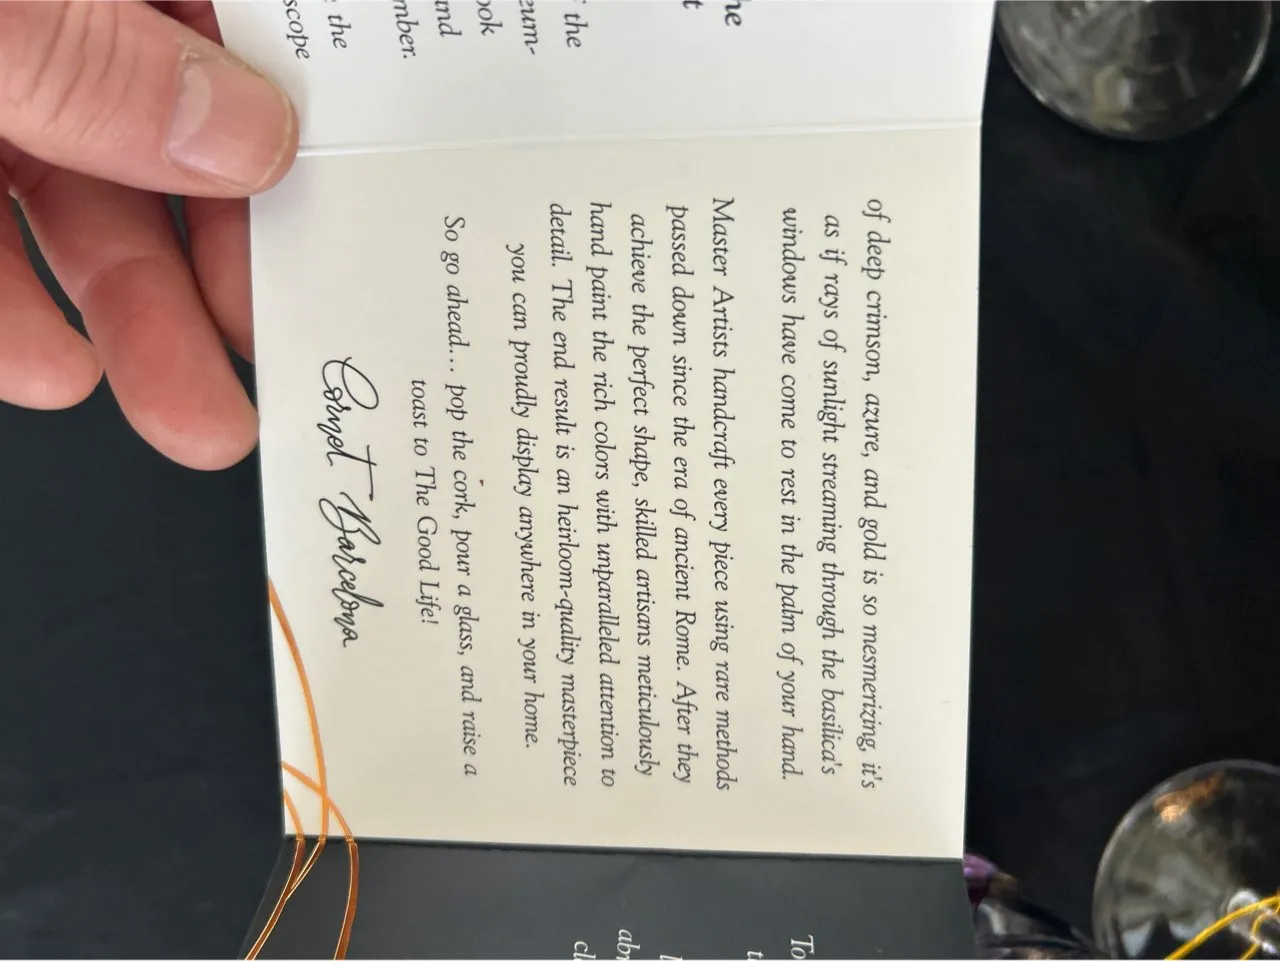 he
t
the
eum-
ook
und
mber.
the
scope
of deep crimson, azure, and gold is so mesmerizing, it's
as if rays of sunlight streaming through the basilica's
windows have come to rest in the palm of your hand.
Master Artists handcraft every piece using rare methods
passed down since the era of ancient Rome. After they
achieve the perfect shape, skilled artisans meticulously
hand paint the rich colors with unparalleled attention to
detail. The end result is an heirloom-quality masterpiece
you can proudly display anywhere in your home.
So go ahead... pop the cork, pour a glass, and raise a
toast to The Good Life!
Cornet Barcelona
To
t
abr
cl